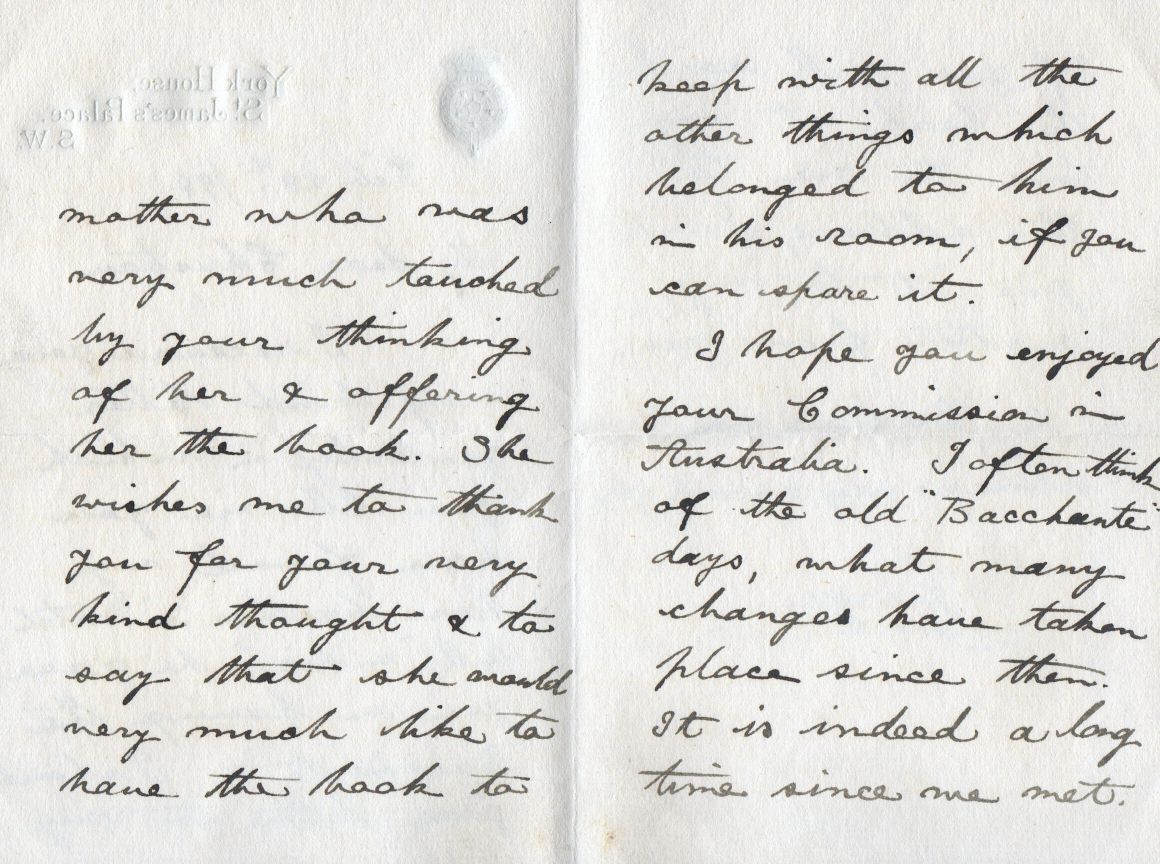 York House,
St. James's Palace.
S.W.
mother who was
very much touched
by your thinking
of her & offering
her the book. She
wishes me to thank
you for your very
kind thought & to
say that she would
very much like to
have the book to
keep with all the
other things which
belonged to him
in his room, if you
can spare it.
I hope you enjoyed
your Commission in
Australia. I often think
of the old "Bacchante"
days, what many
changes have taken
place since then.
It is indeed a long
time since we met.